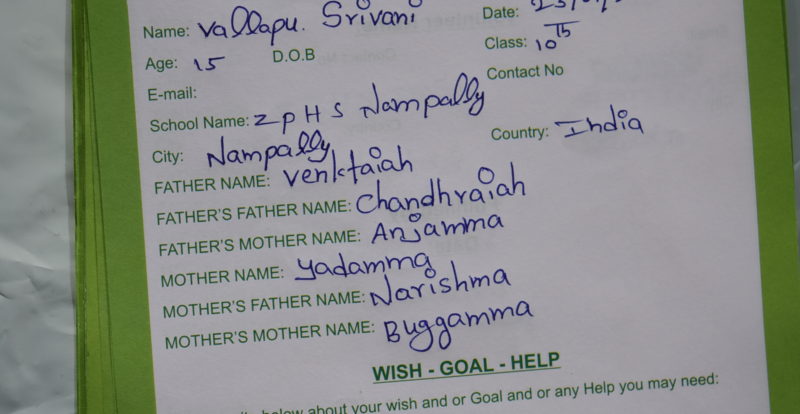 Name: Vallapu. Srivani Date:
Age: 15 D.O.B Class: 10
E-mail: Contact No
School Name: ZPHS Nampally
City: Nampally Country: India
FATHER NAME: Venktaiah
FATHER'S FATHER NAME: Chandhraiah
FATHER'S MOTHER NAME: Anjamma
MOTHER NAME: Yadamma
MOTHER'S FATHER NAME: Narishma
MOTHER'S MOTHER NAME: Buggamma
WISH - GOAL - HELP
below about your wish and or Goal and or any Help you may need: